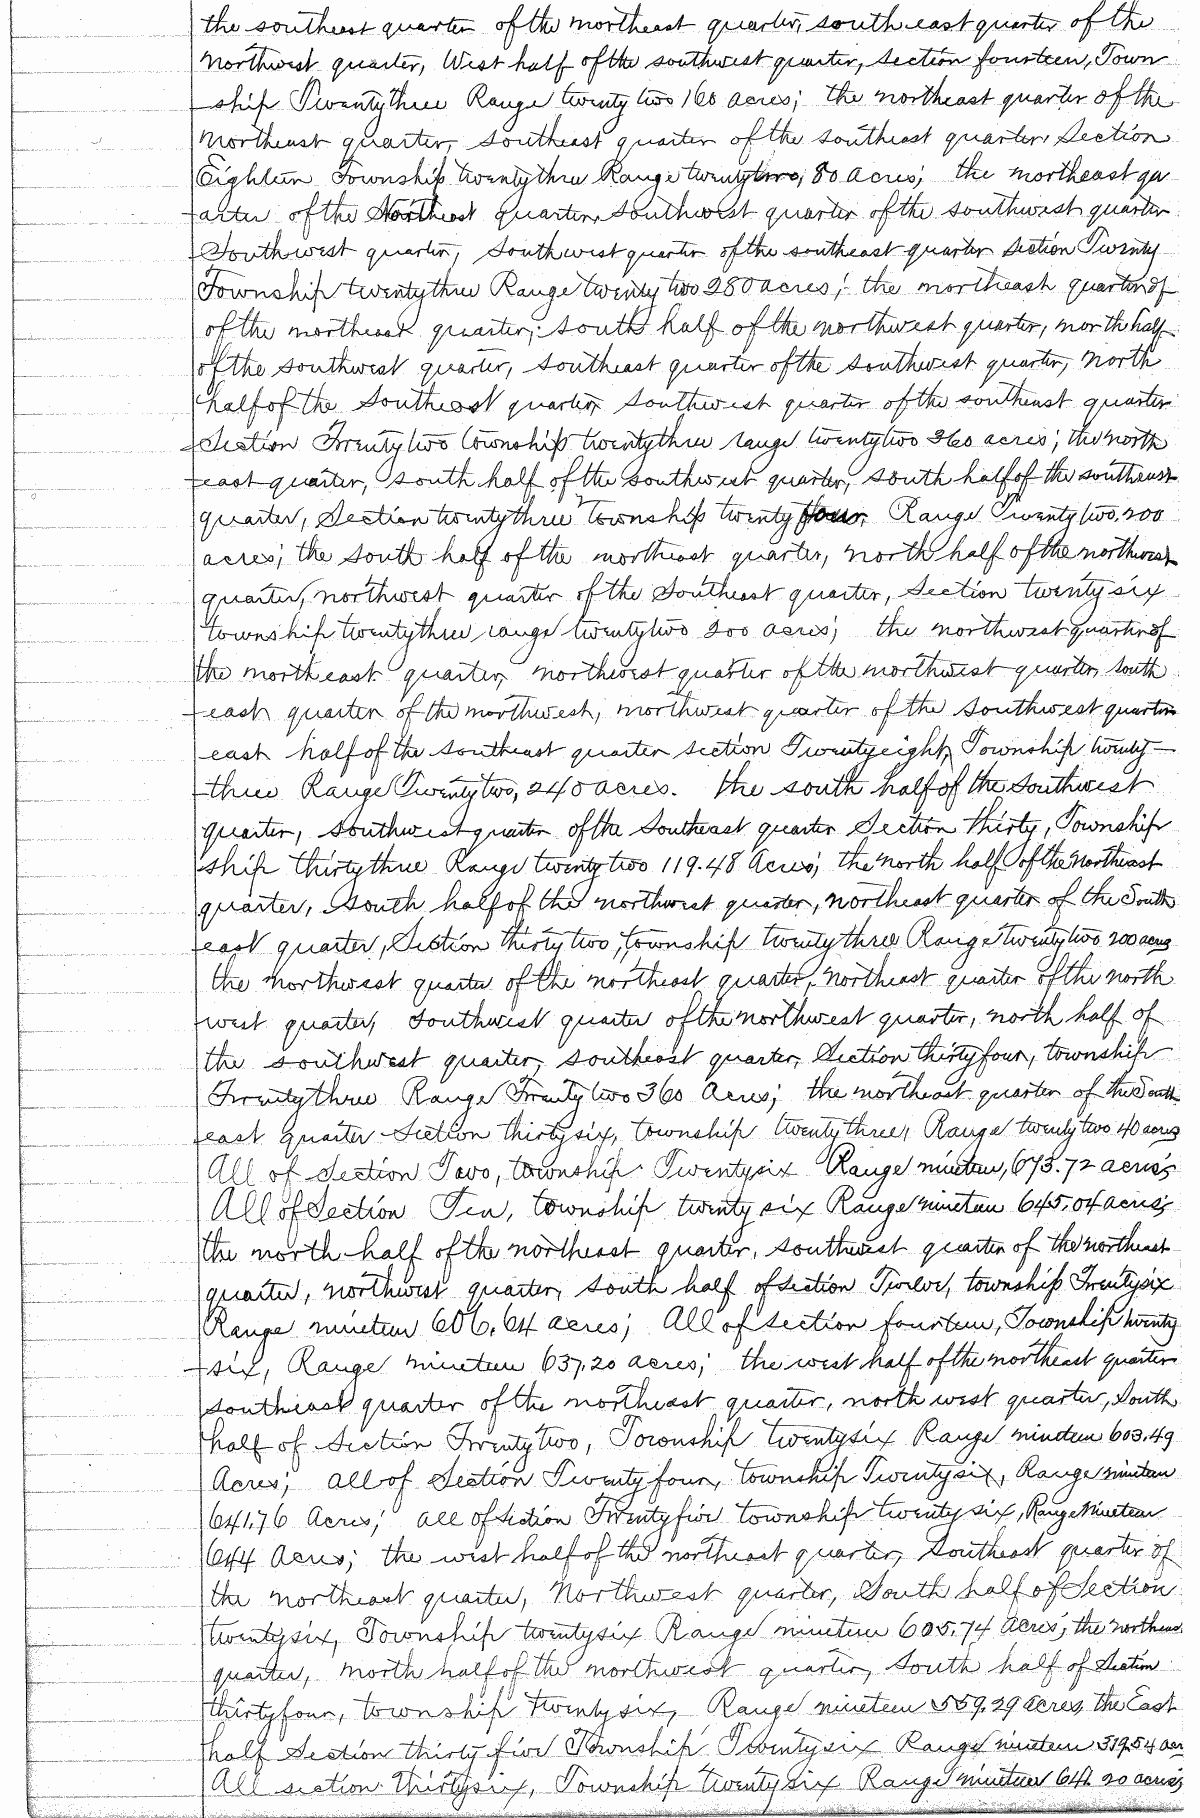 the southeast quarter of the northeast quarter, south east quarter of the
Northwest quarter, West half of the southwest quarter, section fourteen, Town
ship Twenty three Range twenty two 160 acres; the northeast quarter of the
Northeast quarter, southeast quarter of the southeast quarter, Section
Eighteen Township twenty three Range twenty two, 80 acres; the northeast qu
arter of the Northeast quarter, Southwest quarter of the southwest quarter
Southwest quarter, southwest quarter of the southeast quarter Section Twenty
Township twenty three Range twenty two 280 acres; the northeast quarter of
of the northeast quarter; south half of the northwest quarter, north half
of the southwest quarter, southeast quarter of the southwest quarter, north
half of the Southeast quarter, Southwest quarter of the southeast quarter
Section Twenty two township twenty three range twenty two 360 acres; the north
east quarter, south half of the southwest quarter, south half of the southeast
quarter, Section twenty three township twenty four, Range Twenty two, 200
acres; the south half of the northeast quarter, north half of the northwest
quarter, northwest quarter of the Southeast quarter, Section twenty six
township twenty three range twenty two 200 acres; the northwest quarter of
the north east quarter, northwest quarter of the northwest quarter, south
east quarter of the northwest, northwest quarter of the southwest quarter
east half of the southeast quarter section Twenty eight, Township twenty-
three Range Twenty two, 240 acres. The south half of the Southwest
quarter, southwest quarter of the Southeast quarter Section thirty, Township
ship thirty three Range twenty two 119.48 Acres; the north half of the Northeast
quarter, South half of the northwest quarter, northeast quarter of the South
east quarter, Section thirty two, township twenty three Range twenty two 200 acres
the northwest quarter of the northeast quarter, Northeast quarter of the north
west quarter, Southwest quarter of the northwest quarter, north half of
the southwest quarter, southeast quarter, Section thirty four, township
Twenty three Range Twenty two 360 Acres; the northeast quarter of the South
east quarter Section thirty six, township twenty three, Range twenty two 40 acres
All of Section Two, township Twenty six Range nineteen, 673.72 acres;
All of Section Ten, township twenty six Range nineteen 645.04 acres;
the north half of the northeast quarter, southwest quarter of the northeast
quarter, northwest quarter, south half of section Twelve, township Twenty six
Range nineteen 606.64 acres; All of section fourteen, Township twenty
six, Range nineteen 637.20 acres; the west half of the northeast quarter
southeast quarter of the northeast quarter, north west quarter, South
half of Section Twenty two, Township twenty six Range nineteen 603.49
Acres; all of Section Twenty four, township Twenty six, Range nineteen
641.76 Acres; all of Section Twenty five township twenty six, Range Nineteen
644 Acres; the west half of the northeast quarter, Southeast quarter of
the northeast quarter, Northwest quarter, South half of Section
twenty six, Township twenty six Range nineteen 605.74 Acres; the northeast
quarter, north half of the northwest quarter, south half of Section
thirty four, township twenty six, Range nineteen 559.29 acres, the East
half Section thirty five Township Twenty six Range nineteen 319.54 acr
All section thirty six, Township twenty six Range nineteen 641.20 acres;